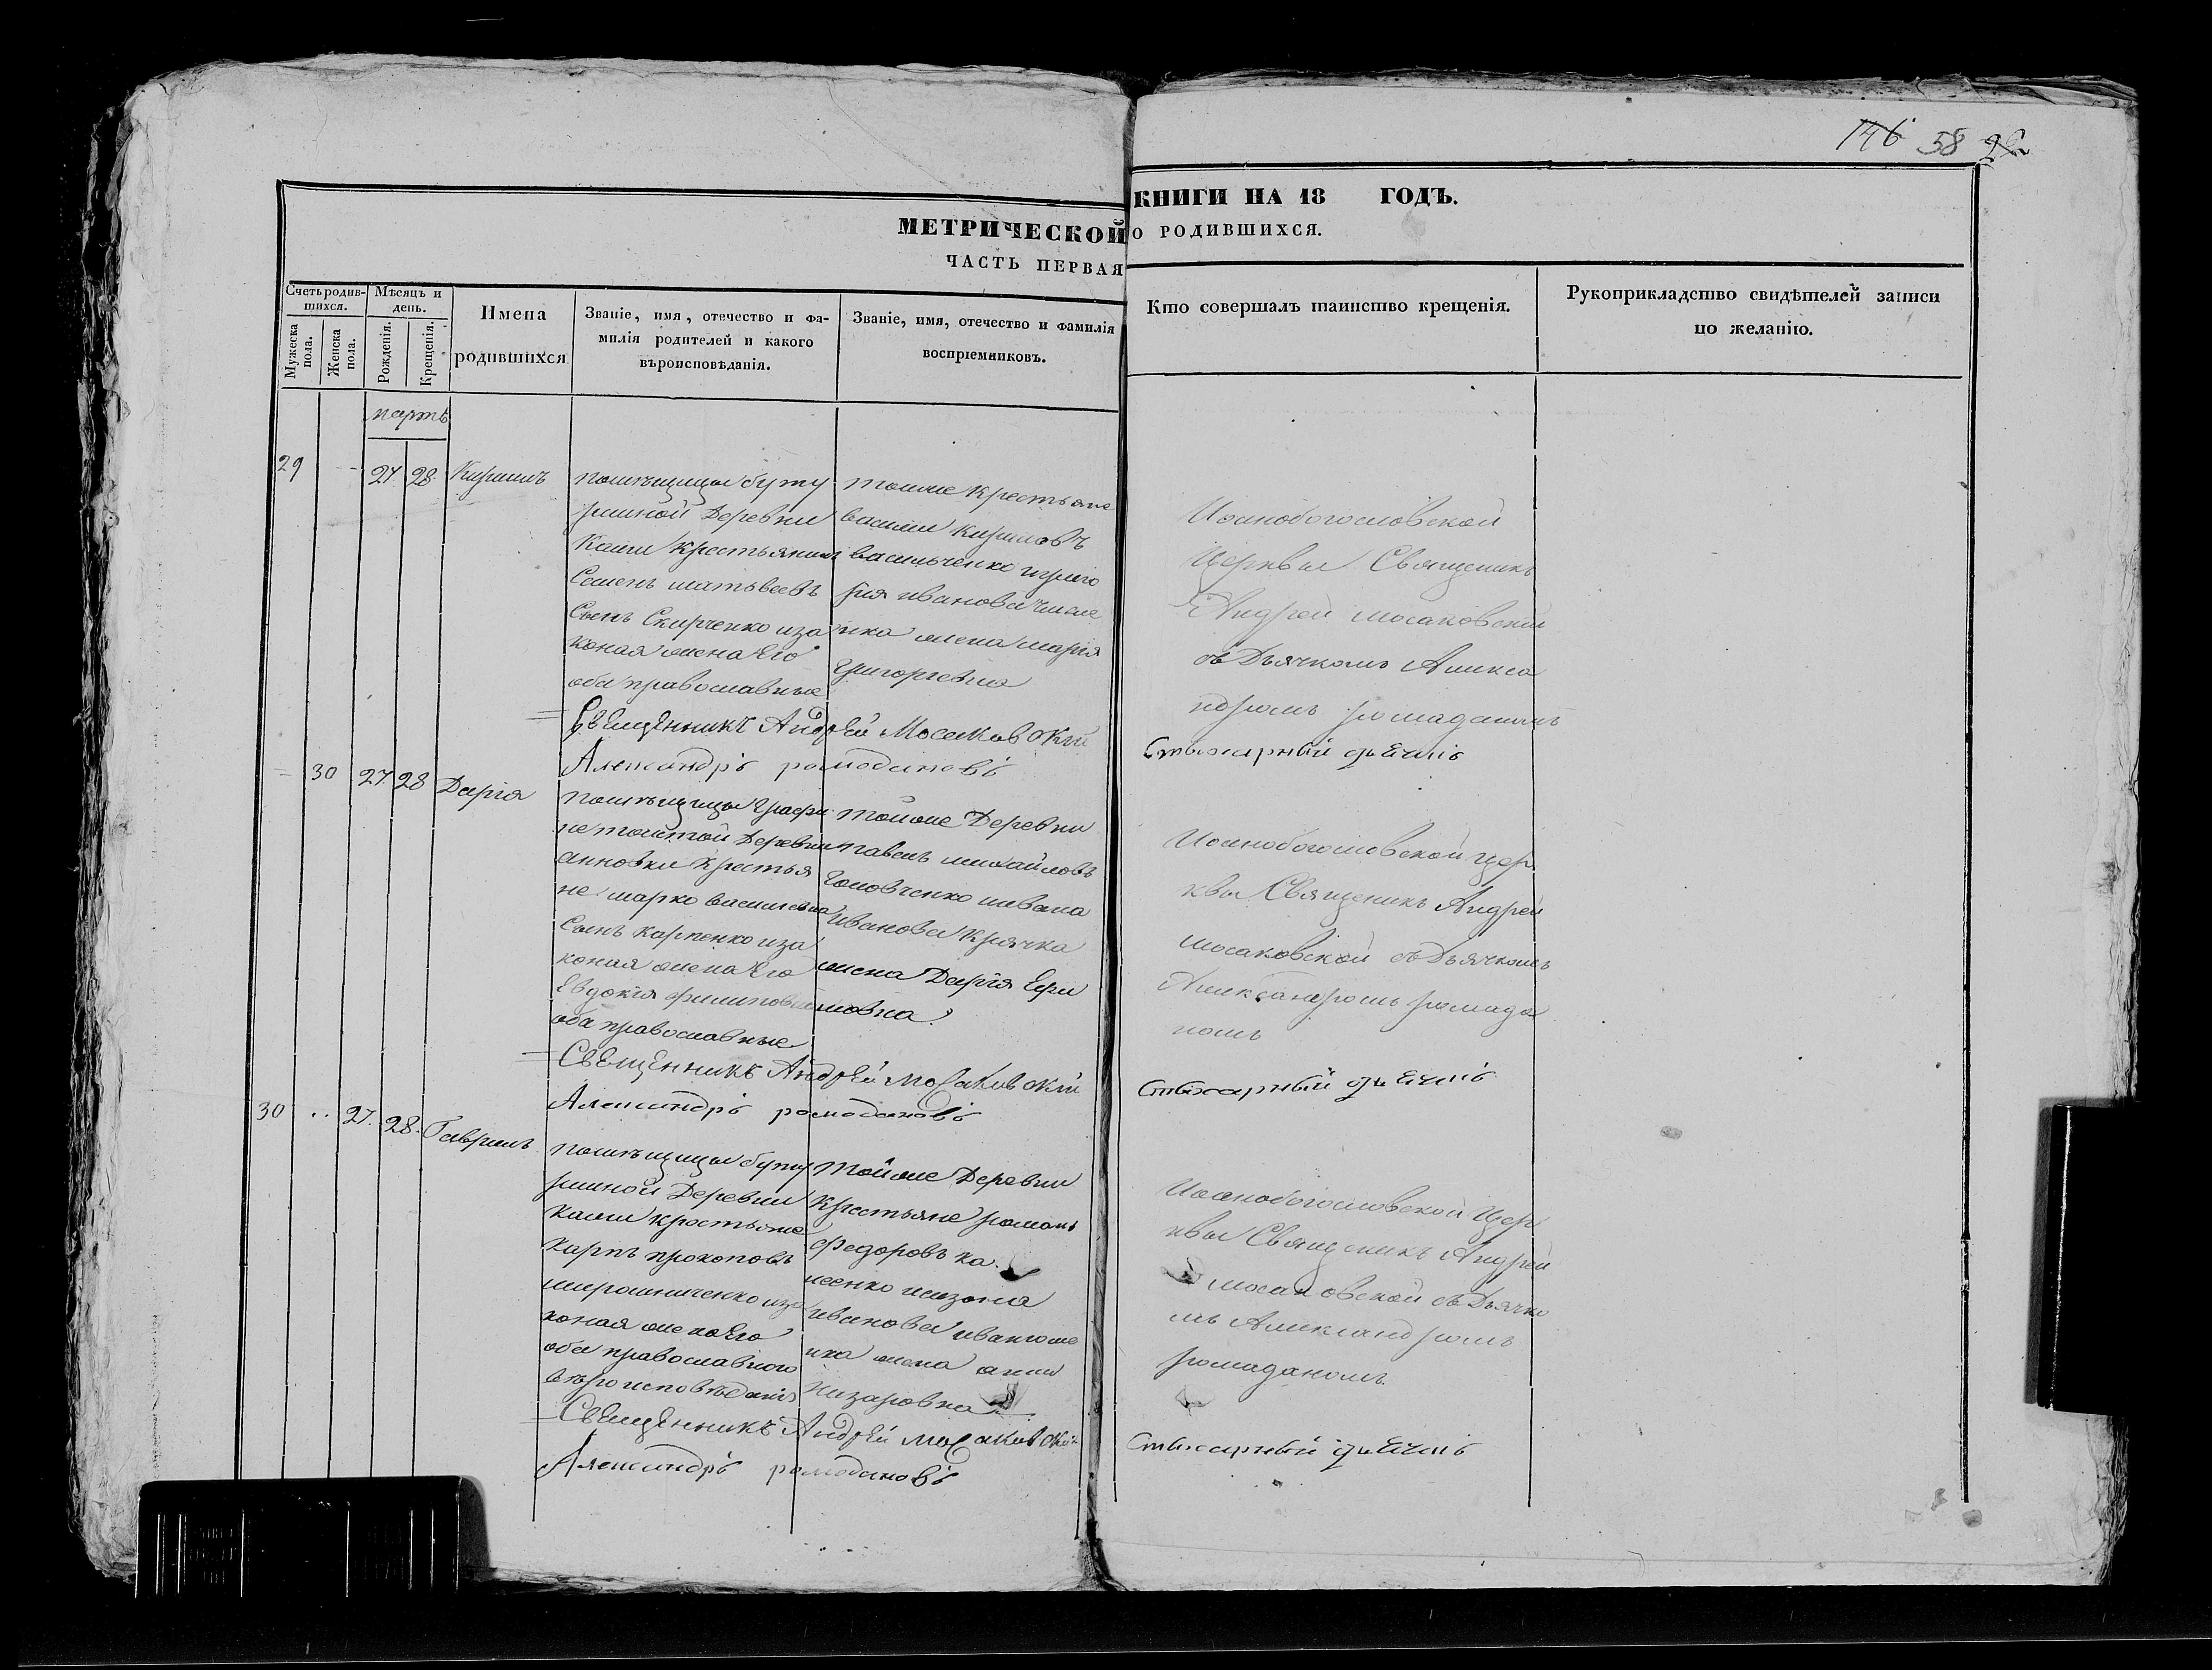 146 58 22
МЕТРИЧЕСКОЙ КНИГИ НА 18 ГОДЪ.
ЧАСТЬ ПЕРВАЯ О РОДИВШИХСЯ.
Счетъ родив-
шихся.
Мужеска пола.
Женска пола.
Мѣсяцъ и
день.
Рожденія.
Крещенія.
Имена
родившихся
Званіе, имя, отечество и фа-
милія родителей и какого
вѣроисповѣданія.
Званіе, имя, отечество и фамилія
воспріемниковъ.
Кто совершалъ таинство крещенія.
Рукоприкладство свидѣтелей записи
по желанію.
мартъ
29 27 28 Кирилъ
помѣщицы буту
рлиной Деревни
Кати крестьянинъ
Семенъ матвеевъ
Сынъ Скирченко иза
коная жена Его
оба православные
тоиже Крестьяне
василий Кириловъ
васильченко
иванова
жена мария
Григориевна
Иоанобогословской
Церквы Священикъ
Андрей мосаковской
съ Дьячкомъ Алекса
ндромъ ромаданомъ
Священникъ Андрей Мосаковский
Александръ ромодановъ
Стыхарный
30 27 28 Дария
помѣщицы Графи
не толстой Деревни
анновки Крестья
не марко василиевъ
Сынъ карпенко иза
коная жена Его
Евдокия филиповна
оба православные
тойже Деревни
павелъ михайловъ
Головченко
иванова Крячка
жена Дария Ефи
мовна
Иоанобогословской цер
квы Священикъ Андрей
мосаковской съ Дьячкомъ
Александромъ ромада
номъ
Священникъ Андрей мосаковский
Александръ ромодановъ
Стыхарный
30 27. 28. Гаврилъ
помѣщицы буту
рлиной Деревни
Кати крестьяне
Карпъ прокоповъ
мирошниченко иза
коная жена Его
оба православного
вѣроисповѣдания
тойже Деревни
Крестьяне романъ
федоровъ ко
ивanова
жена анна
Назаровна
Иоанобогословской Цер
квы Священикъ Андрей
мосаковской съ Дьячко
мъ Александромъ
ромаданомъ.
Священникъ Андрей мосаковский
Александръ ромодановъ
Стыхарный